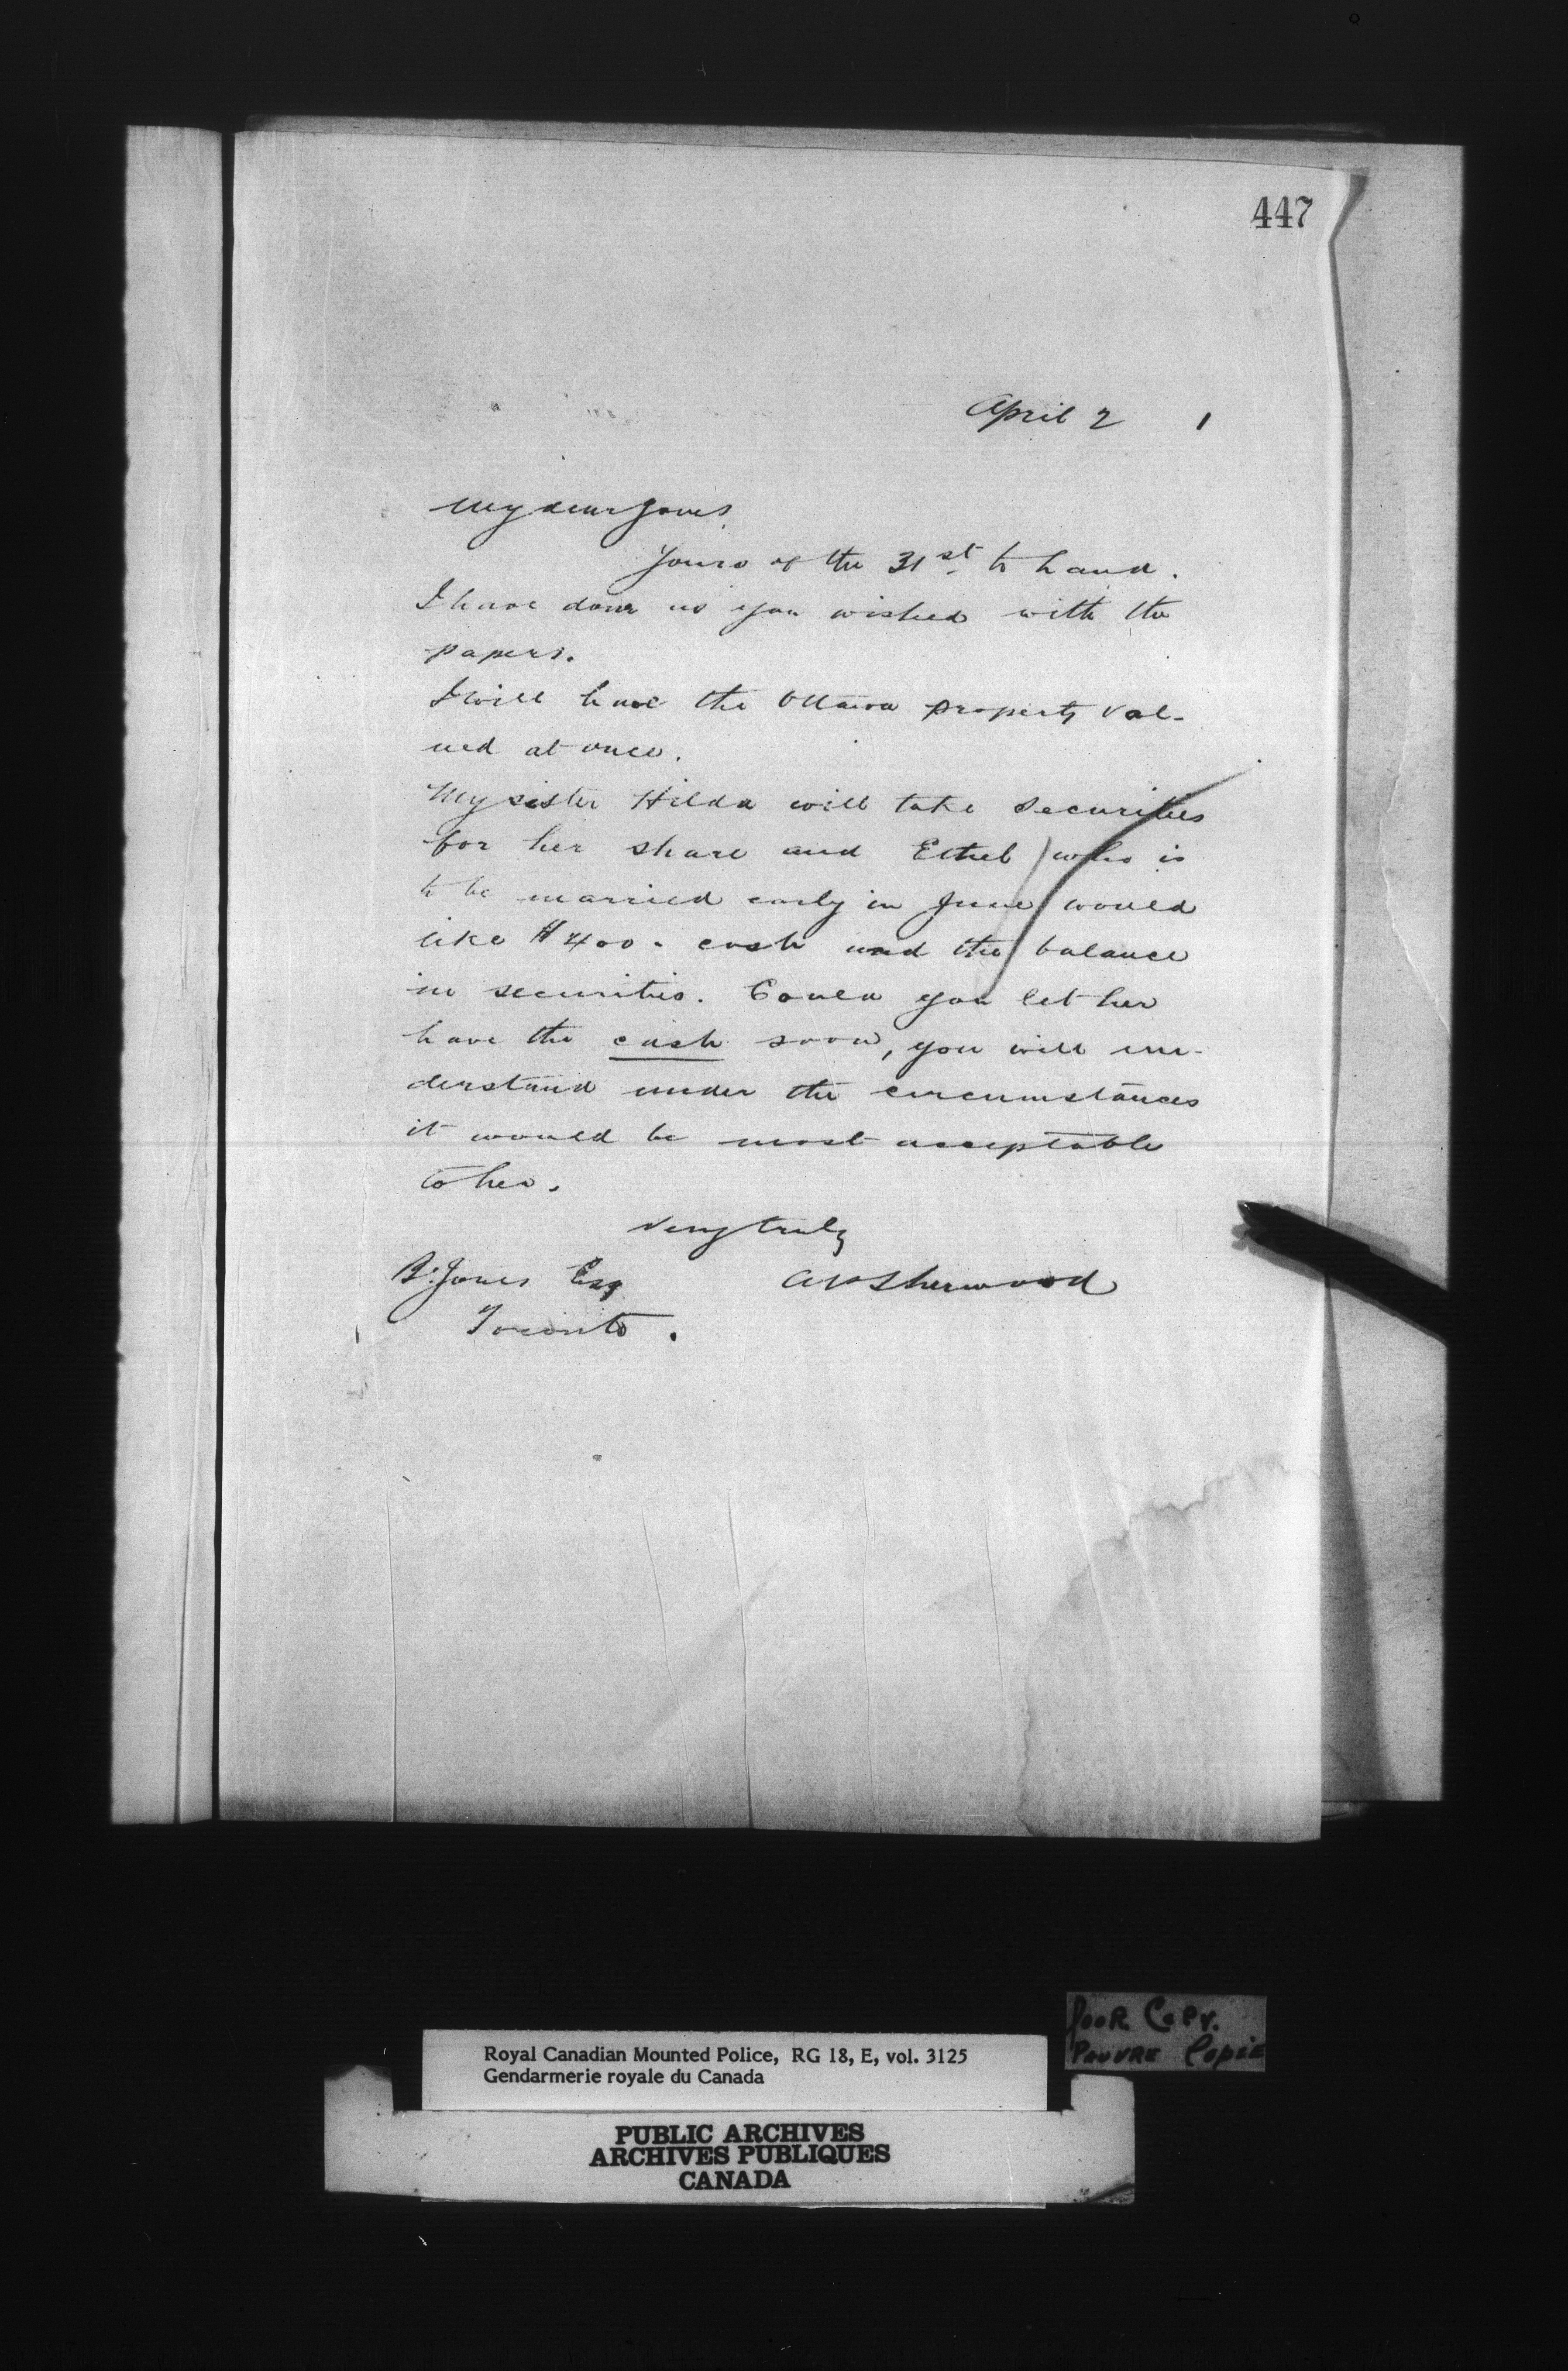 447
April 2 1
My dear Jones,
Yours of the 31st to hand.
I have done as you wished with the
papers.
I will have the Ottawa property val-
ued at once.
My sister Hilda will take securities
for her share and Ethel (who is
to be married early in June) would
like $400. cash and the balance
in securities. Could you let her
have the cash soon, you will un-
derstand under the circumstances
it would be most acceptable
to her.
Very truly
AP Sherwood
B. Jones Esq
Toronto.
Poor Copy.
Pauvre Copie
Royal Canadian Mounted Police, RG 18, E, vol. 3125
Gendarmerie royale du Canada
PUBLIC ARCHIVES
ARCHIVES PUBLIQUES
CANADA